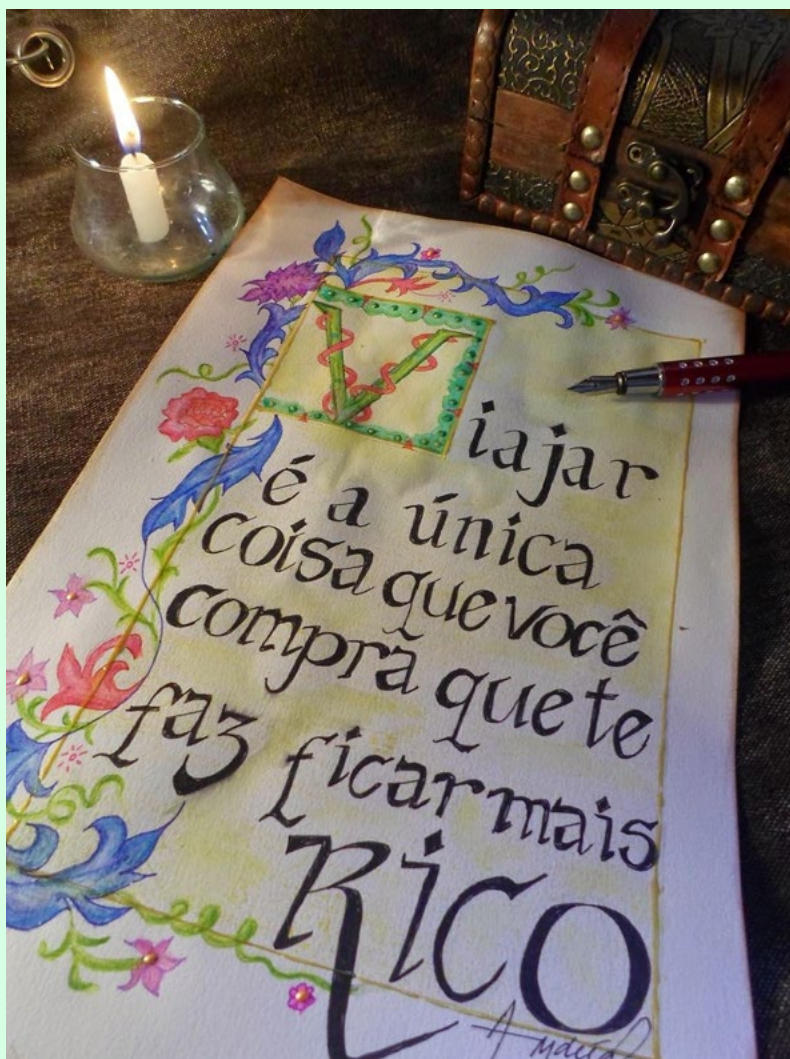 Viajar
é a única
coisa que você
compra que te
faz ficar mais
Rico